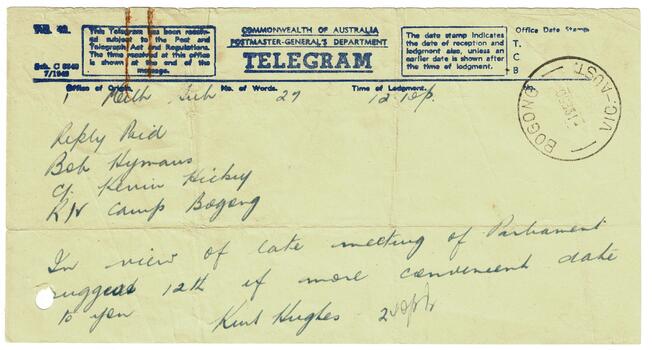 This Telegram has been received subject to the Post and Telegraph Act and Regulations. The time received at this office is shown at the end of the message.
Sch. C 5040
7/1949
COMMONWEALTH OF AUSTRALIA
POSTMASTER-GENERAL'S DEPARTMENT
TELEGRAM
The date stamp indicates the date of reception and lodgment also, unless an earlier date is shown after the time of lodgment.
Office Date Stamp
T.
C.
B
BOGONG
VIC-AUST.
Office of Origin. No. of Words. Time of Lodgment.
Melb Sub 27 12 10p.
Reply Paid
Bob Hymans
c/. Kevin Hickey
Camp Bogong
In view of late meeting of Parliament
suggest 12th if more convenient date
to you Kent Hughes